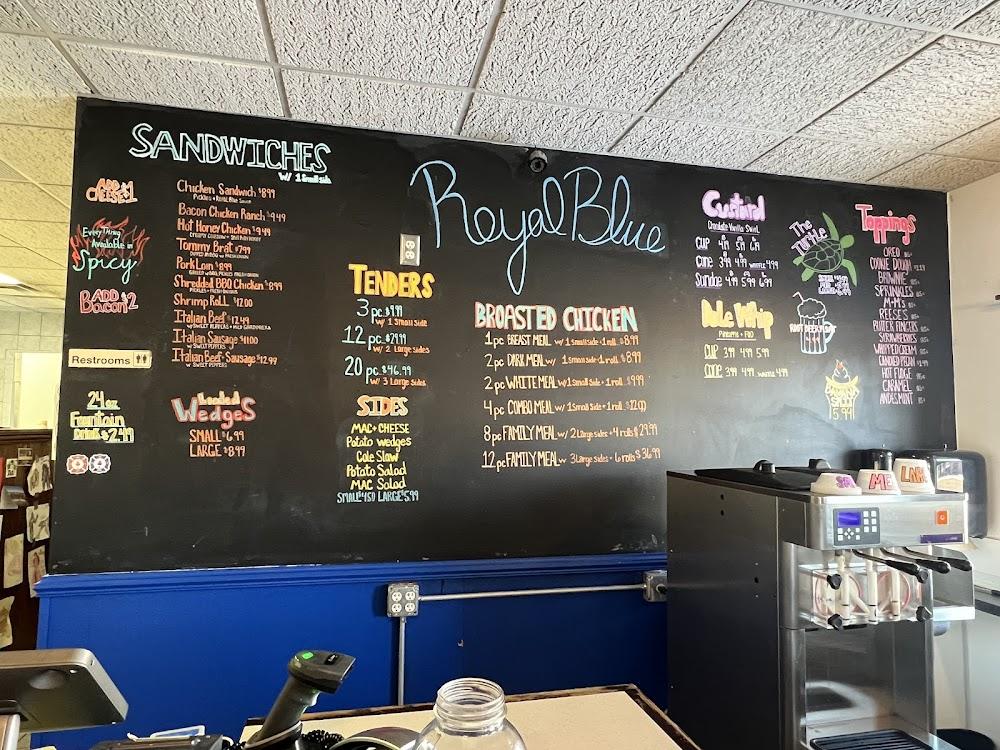 SANDWICHES
w/ 1 Small side
ADD
CHEESE $1
EVERYTHING
Available in
Spicy
ADD
BACON $2
Chicken Sandwich $8.99
Bacon Chicken Ranch $9.49
Hot Honey Chicken $9.49
Tommy Brat $7.99
Pork Loin $8.99
Shredded BBQ Chicken $8.99
Shrimp Roll $12.00
Italian Beef $12.49
Italian Sausage $11.00
w/ SWEET PEPPERS
Italian Beef-Sausage $12.99
w/ SWEET PEPPERS
Restrooms
24oz
Fountain
Drink $2.49
Loaded
WedgeS
SMALL $6.99
LARGE $8.99
Royal Blue
TENDERS
3 pc.
w/ 1 Small side
12 pc. $27.99
w/ 2 Large sides
20 pc. $46.99
w/ 3 Large sides
SIDES
MAC+CHEESE
Potato wedges
Cole Slaw
Potato Salad
MAC Salad
SMALL $4.50 LARGE $5.99
BROASTED CHICKEN
1pc BREAST MEAL w/ 1 small side + 1 roll $8.99
2pc DARK MEAL w/ 1 small side + 1 roll $8.99
2pc WHITE MEAL w/ 1 small side + 1 roll $9.99
4pc COMBO MEAL w/ 1 Small side + 1 roll $12.00
8pc FAMILY MEAL w/ 2 Large sides + 4 rolls $29.99
12pc FAMILY MEAL w/ 3 Large sides + 6 rolls $36.99
Custard
Chocolate Vanilla Swirl
CUP 4.49 5.49 6.49
Cone 3.99 4.99 WAFFLE 4.99
Sundae 4.99 5.99 6.99
Dole Whip
CUP 3.99 4.99 5.99
Cone 3.99 4.99 WAFFLE 4.99
The
TURTLE
ROOT BEER FLOAT
BANANA
SPLIT
5.99
Toppings
OREO
COOKIE DOUGH
BROWNIE
SPRINKLES
M+M's
REESES
BUTTER FINGERS
STRAWBERRIES
WHIPPED CREAM
CANDIED PECAN
HOT FUDGE
CARAMEL
ANDES MINT
SM
ME
LAR